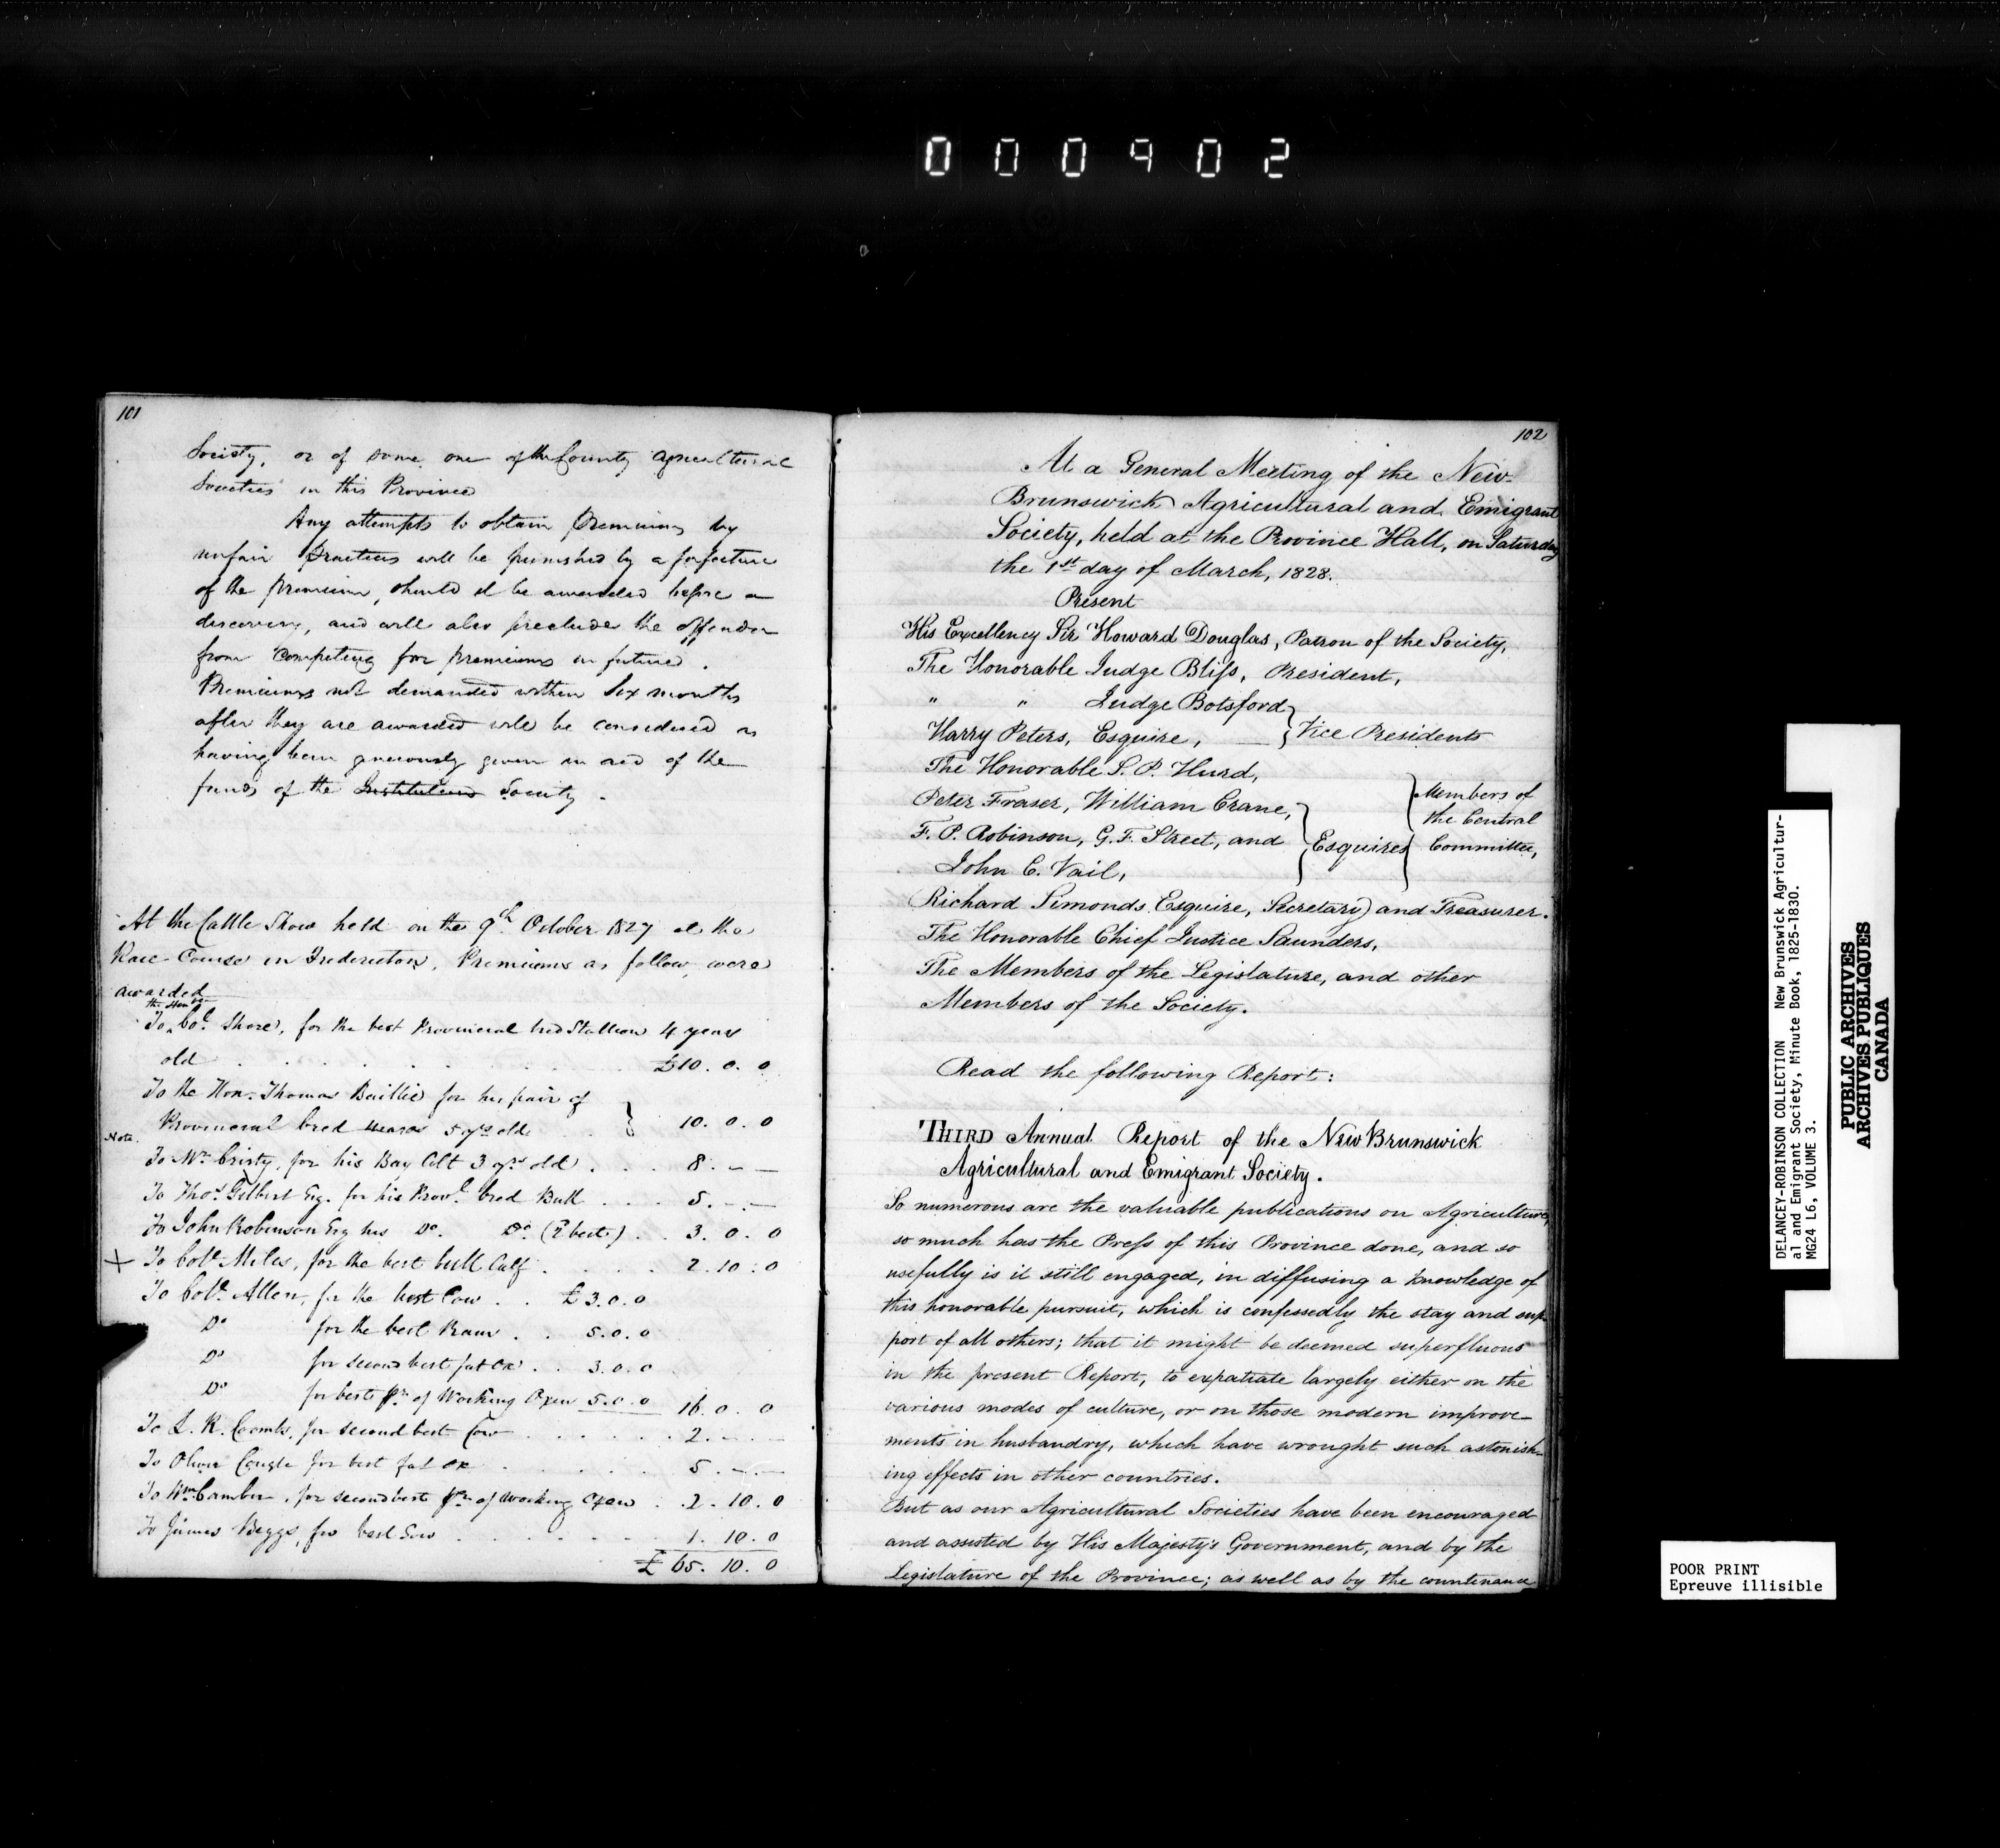 000902
101
Society, or of some one of the County Agricultural
Societies in this Province
Any attempts to obtain Premiums by
unfair Practices will be punished by a forfeiture
of the premium, should it be awarded before a
discovery, and will also preclude the offender
from Competing for premiums in future.
Premiums not demanded within Six months
after they are awarded will be considered as
having been generously given in aid of the
funds of the Institution Society.
At the Cattle Show held on the 9th October 1827 at the
Race Course in Fredericton, Premiums as follow, were
awarded
the Honble
To Col. Shore, for the best Provincial bred Stallion 4 years
old £10. 0. 0
To the Hon. Thomas Baillie for his pair of
Provincial bred 5 yrs old 10. 0. 0
Note.
To Mr. Cristy, for his Bay Colt 3 yrs old 8. - -
To Thos. Gilbert Esq. for his Provl. bred Bull 5. - -
To John Robinson Esq his Do. Do. (2 best) 3. 0. 0
+ To Col. Miles, for the best bull Calf 2. 10. 0
To Col. Allen, for the best Cow £3. 0. 0
Do for the best Ram 5. 0. 0
Do for second best fat Ox 3. 0. 0
Do for best pr. of Working Oxen 5. 0. 0 16. 0. 0
To L. R. Coombs, for second best Cow 2. - -
To Oliver for best fat ox 5. - -
To Wm Camber, for second best pr. of working Oxen 2. 10. 0
To James Beggs, for best Sow 1. 10. 0
£ 65. 10. 0
102
At a General Meeting of the New-
Brunswick Agricultural and Emigrant
Society, held at the Province Hall, on Saturday
the 1st day of March, 1828.
Present
His Excellency Sir Howard Douglas, Patron of the Society,
The Honorable Judge Bliss, President,
" " Judge Botsford
Harry Peters, Esquire, — } Vice Presidents
The Honorable S. P. Hurd,
Peter Fraser, William Crane,
F. P. Robinson, G. F. Street, and
John C. Vail,
} Esquires
} Members of
the Central
Committee,
Richard Simonds Esquire, Secretary and Treasurer.
The Honorable Chief Justice Saunders,
The Members of the Legislature, and other
Members of the Society.
Read the following Report:
THIRD Annual Report of the New Brunswick
Agricultural and Emigrant Society.
So numerous are the valuable publications on Agriculture,
so much has the Press of this Province done, and so
usefully is it still engaged, in diffusing a knowledge of
this honorable pursuit, which is confessedly the stay and sup-
port of all others; that it might be deemed superfluous
in the present Report, to expatiate largely either on the
various modes of culture, or on those modern improve-
ments in husbandry, which have wrought such astonish-
ing effects in other countries.
But as our Agricultural Societies have been encouraged
and assisted by His Majesty's Government, and by the
Legislature of the Province; as well as by the countenance
DELANCEY-ROBINSON COLLECTION New Brunswick Agricultur-
al and Emigrant Society, Minute Book, 1825-1830.
MG24 L6, VOLUME 3.
PUBLIC ARCHIVES
ARCHIVES PUBLIQUES
CANADA
POOR PRINT
Epreuve illisible